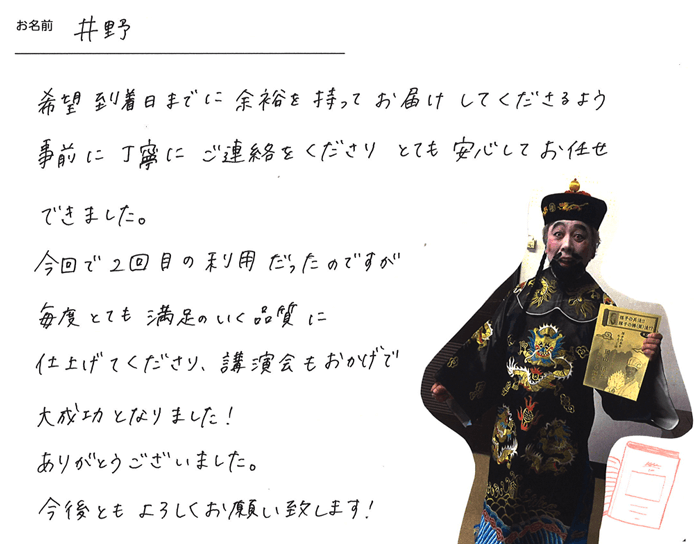 お名前 井野
希望到着日までに余裕を持ってお届けしてくださるよう
事前に丁寧にご連絡をくださり とても安心してお任せ
できました。
今回で2回目の利用だったのですが
毎度とても満足のいく品質に
仕上げてくださり、講演会もおかげで
大成功となりました!
ありがとうございました。
今後ともよろしくお願い致します!